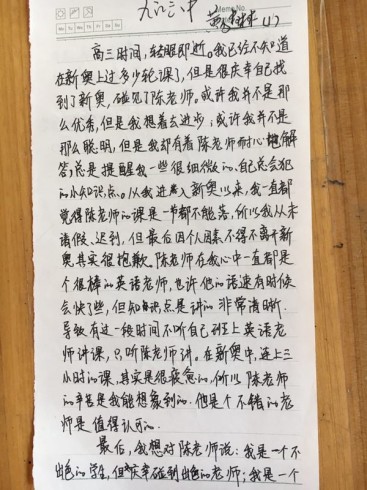 九江三中
(1)
Memo No.
Mo Tu We Th Fr Sa Su
高三时间,转眼即逝。我已经不知道
在新奥上过多少轮课了,但是很庆幸自己找
到了新奥,碰见了陈老师。或许我并不是那
么优秀,但是我想着去进步;或许我并不是
那么聪明,但是我却有着陈老师耐心地解
答,总是提醒我一些很细微的、自己总会犯
的小知识点。从我进入新奥以来,我一直都
觉得陈老师的课是一节都不能落,所以我从未
请假、迟到,但最后因个人因素不得不离开新
奥其实很抱歉。陈老师在我心中一直都是
个很棒的英语老师,也许他的语速有时候
会快了些,但知识点是讲的非常清晰.
导致有这一段时间不听自己班上英语老
师讲课,只听陈老师讲。在新奥中,连上三
小时的课,其实是很疲惫的,所以陈老师
的辛苦是我能想象到的.他是个不错的老
师是值得认可的.
最后,我想对陈老师说:我是一个不
出色的学生,但庆幸碰到出色的老师;我是一个